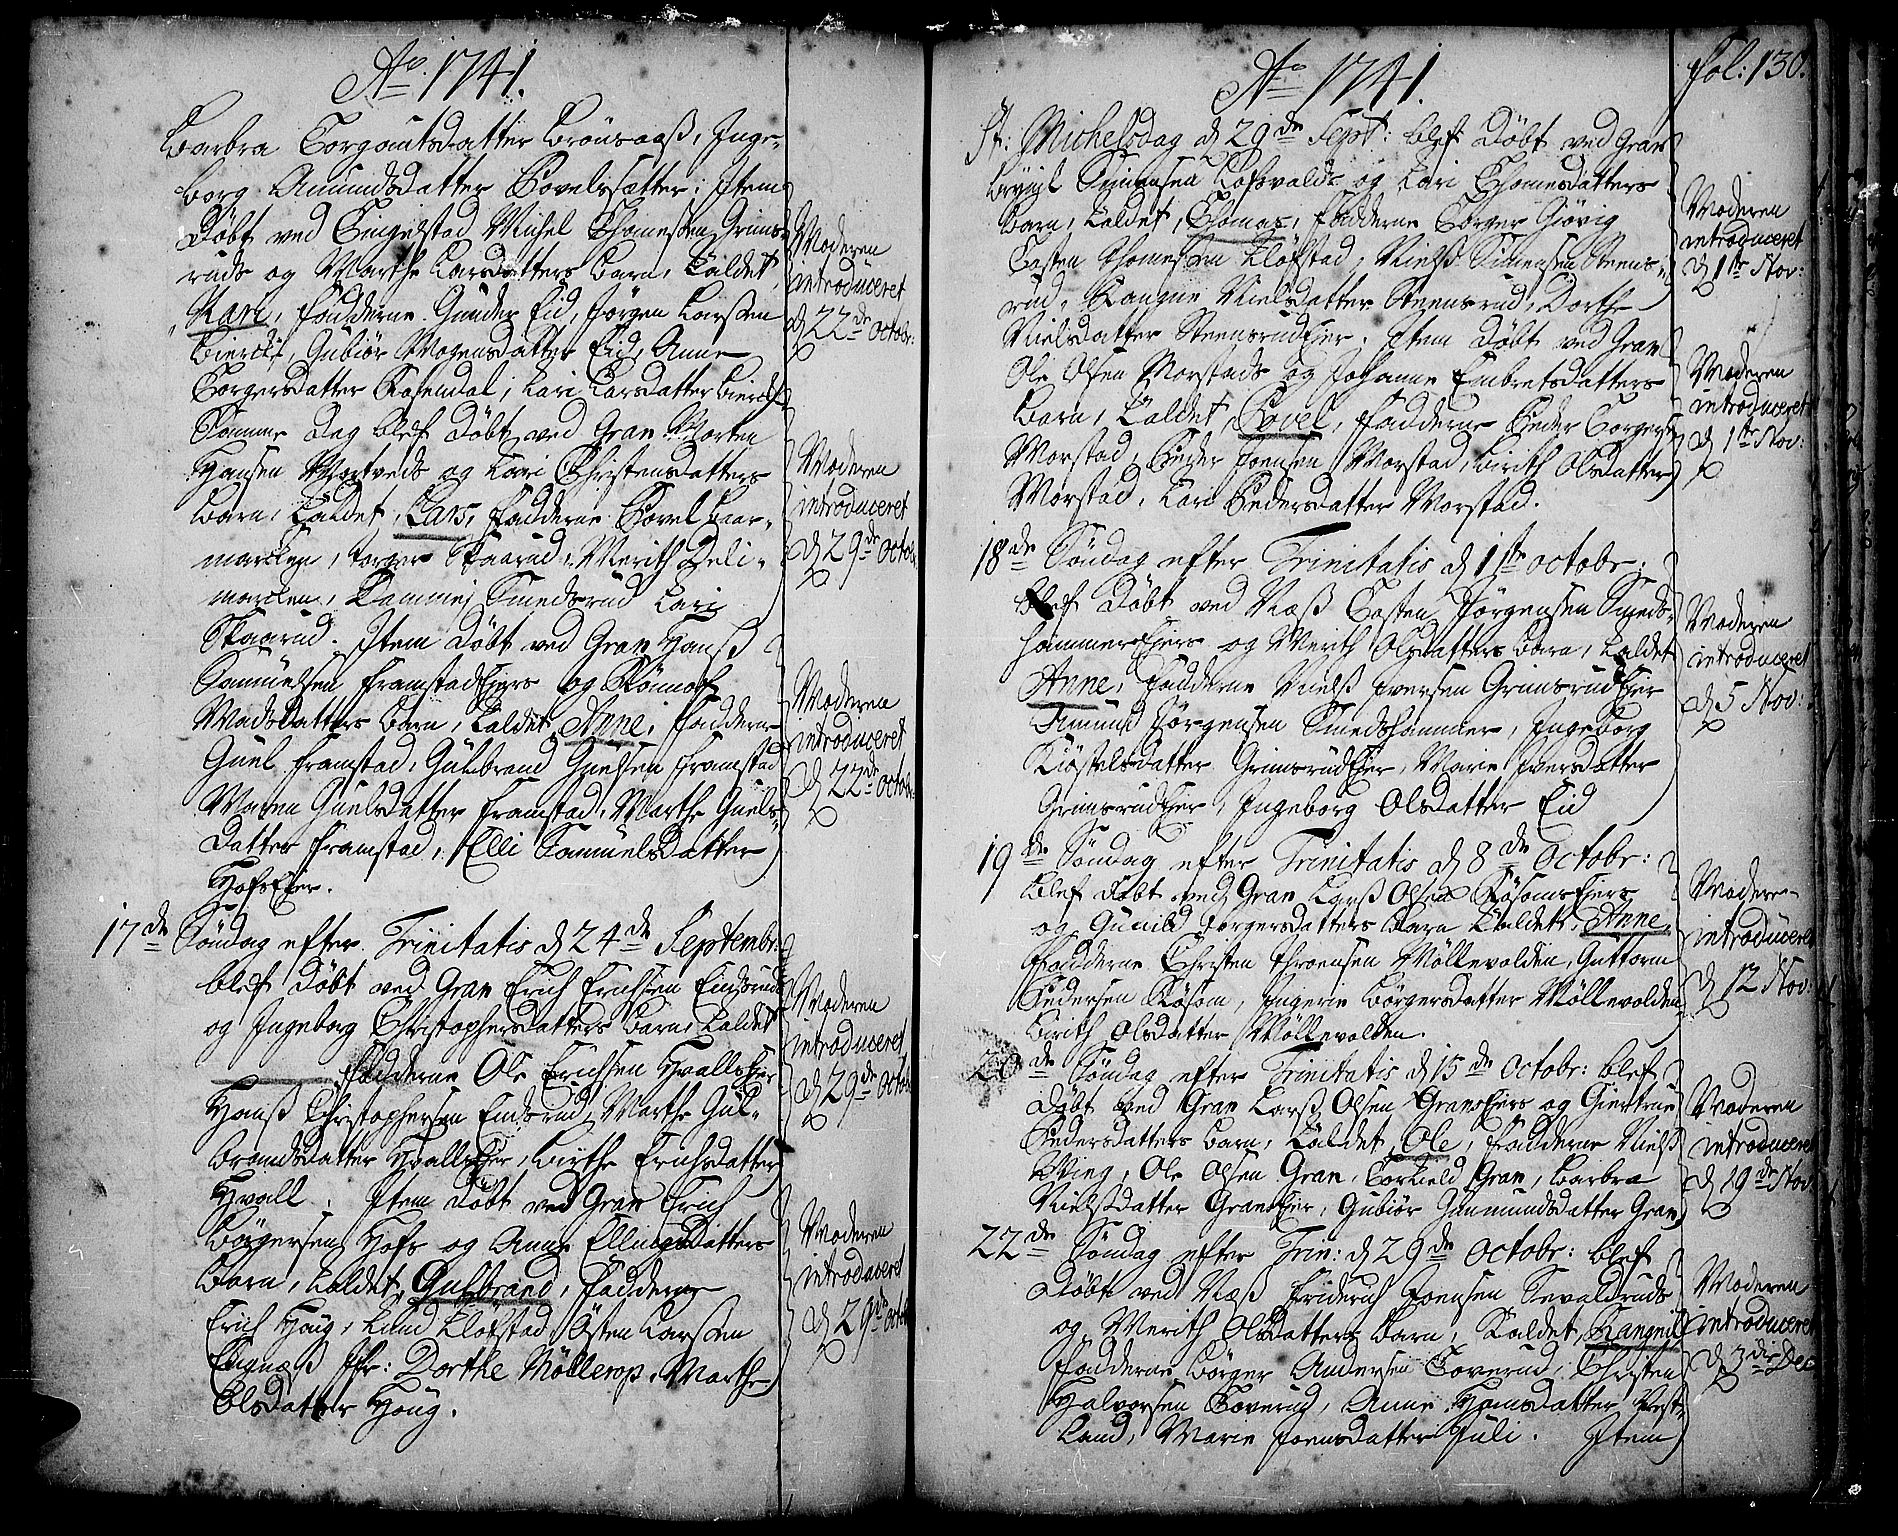 Ao 1741.
Barbra Torgautsdatter Brørsaaß, Inge-
borg Amundsdatter Povelssætter; Item
Døbt ved Tingelstad Michel Thomesøn Grims-
ruds og Marthe Larsdatters barn, Kaldet
Kari, Fadderne Gunder Eid, Jørgen Larssen
Bierche, Gubiør Mogensdatter Eid, Anne
Torgersdatter Rosendal, Kari Larsdatter Bierche
Samme Dag blef Døbt ved Gran Morten
Hansen Mortveds og Kari Christensdatters
barn, Kaldet, Lars, Fadderne Povel
marchen, Torger Skaarud, Merith
marchen, Smedsrud Kari
Skaarud. Item Døbt ved Gran Hanß
Samuelsen Framstadejers og Rønnou
Madsdatters barn, Kaldet, Anne, Fadderne
Guel Framstad, Gulbrand Guelsen Framstad
Maren Guelsdatter Framstad, Marthe Guels-
datter Framstad, Elli Samuelsdatter
Hofsejer.
17de Søndag efter Trinitatis d 24de Septembr:
blef Døbt ved Gran Erich Erichsen Eindsrud
og Ingeborg Christophersdatters barn, Kaldet
Fadderne Ole Erichsen Hvallsejer
Hanß Christophersen Eindsrud, Marthe Gul-
brandsdatter Hvallsejer, Birthe Erichsdatter
Hvall. Item Døbt ved Gran Erich
Børgersen Hofs og Anne Ellingsdatters
barn, Kaldet, Gulbrand, Fadderne
Erich Houg, Knud Kløfstad, Østen Larssen
Engnæß Jfr: Dorthe Möllerop, Marthe
Olsdatter Houg.
Moderen
introduceret
d 22de Octobr:
Moderen
introduceret
d 29de Octobr
Moderen
introduceret
d 22de Octobr:
Moderen
introduceret
d 29de Octobr
Moderen
introduceret
d 29de Octobr
Ao 1741.
Fol: 130.
St: Michelsdag d 29de Sept: blef Døbt ved Gran
Brynil Simensen Kofsvalds og Kari Thomesdatters
barn, Kaldet, Thomas, Fadderne Torger Giøvig
Tosten Thomesøn Kløfstad, Nielß Simensen Steens-
rud, Rangne Nielsdatter Steensrud, Dorthe
Nielsdatter Steensrudejer. Item Døbt ved Gran
Ole Olsen Morstads og Johanne Embretsdatters
barn, Kaldet, Povel, Fadderne Peder Torgers:
Morstad, Peder Joensen Morstad, Birith Olsdatter
Morstad, Kari Pedersdatter Morstad.
18de Søndag efter Trinitatis d 1ste Octobr:
blef Døbt ved Næß Tosten Jørgensen Smeds-
hammersejers og Merith Olsdatters barn, Kaldet
Anne, Fadderne Nielß Iversen Grimsrudejer
Amund Jørgensen Smedshammer, Ingeborg
Kiøstelsdatter Grimsrudejer, Marie Iversdatter
Grimsrudejer, Ingeborg Olsdatter Eid
19de Søndag efter Trinitatis d 8de Octobr:
blef Døbt ved Gran Larß Olsen Røsomsejers
og Gunild Torgersdatters barn Kaldet, Anne,
Fadderne Christen Throensen Møllevolden, Guttorm
Pedersen Røsom, Ingerie Børgersdatter Møllevolden
Birith Olsdatter Møllevolden.
20de Søndag efter Trinitatis d 15de Octobr: blef
Døbt ved Gran Larß Olsen Gransejers og Giertrue
Pedersdatters barn, Kaldet, Ole, Fadderne Nielß
Ming, Ole Olsen Gran, Torkield Gran, Barbra
Nielßdatter Gransejer, Gubiør Gunmundsdatter Gran
22de Søndag efter Trin: d 29de Octobr: blef
Døbt ved Næß Friderich Joensen Sevaldruds
og Merith Olsdatters barn, Kaldet, Rangnil
Fadderne Børger Andersen Toverud, Christen
Halvorsen Toverud, Anne Hansdatter Vest-
land, Marie Joensdatter Juli. Item
Moderen
introduceret
d 1ste Nov:
Moderen
introduceret
d 1ste Nov:
Moderen
introduceret
d 5 Nov:
Moderen
introduceret
d 12 Nov:
Moderen
introduceret
d 19de Nov:
Moderen
introduceret
d 3die Dec